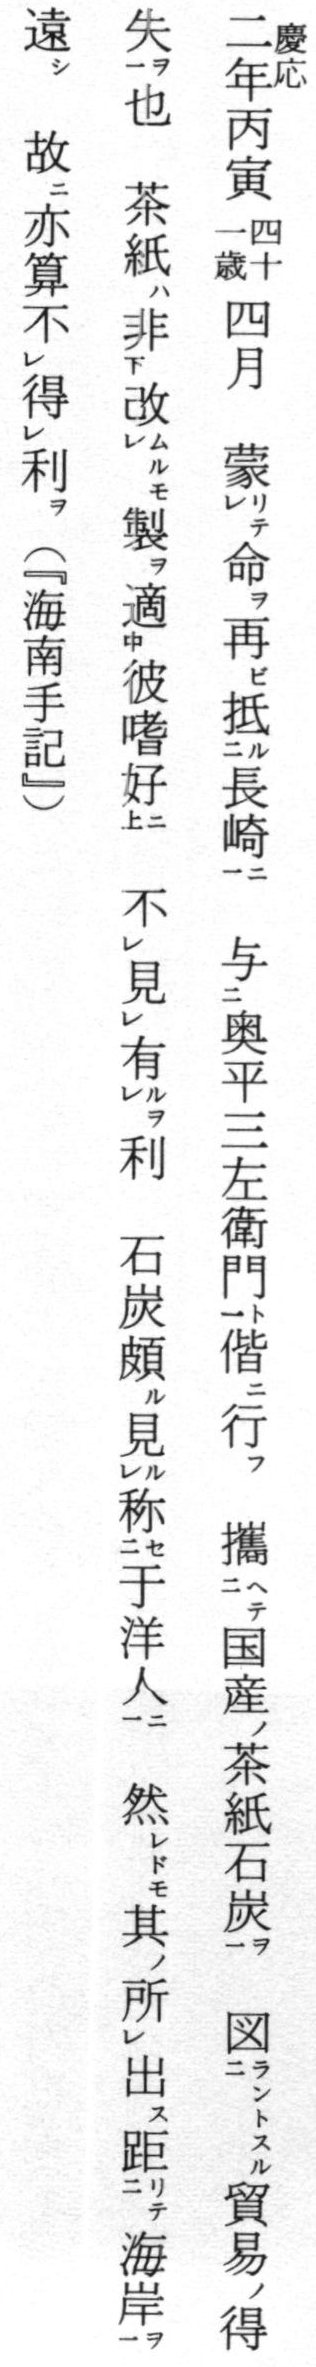 慶応二年丙寅四十一歳四月　蒙レリテ命ヲ再ビ抵ニル長崎一ニ　与ニ奥平三左衛門一ト偕ニ行フ　攜ニヘテ国産ノ茶紙石炭一ヲ　図ニラントスル貿易ノ得
失一ヲ也　茶紙ハ非下改レムルモ製ヲ適中彼嗜好上ニ　不レ見レ有レルヲ利　石炭頗ル見レル称ニセ于洋人一ニ　然レドモ其ノ所レ出ス距ニリテ海岸一ヲ
遠シ　故ニ亦算不レ得レ利ヲ（『海南手記』）